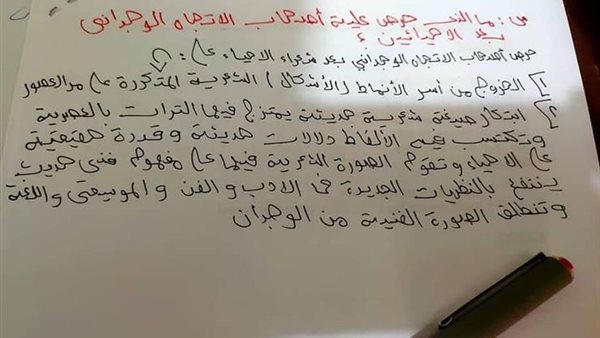 س: ما الذى حرص عليه أصحاب الاتجاه الوجدانى
بعد الإحيائيين ؟
حرص أصحاب الاتجاه الوجدانى بعد شعراء الاحياء على :
1 الخروج من أسر الأنماط (الأشكال) الشعرية المتكررة على مر العصور
2 ابتكار صيغة شعرية حديثة يمتزج فيها التراث بالعصرية
وتكتسب فيه الألفاظ دلالات حديثة وقدرة حقيقية
على الاحياء وتقوم الصورة الشعرية فيها على مفهوم فنى حديث
ينتفع بالنظريات الجديدة فى الادب والفن والموسيقى واللغة
وتنطلق الصورة الفنية من الوجدان